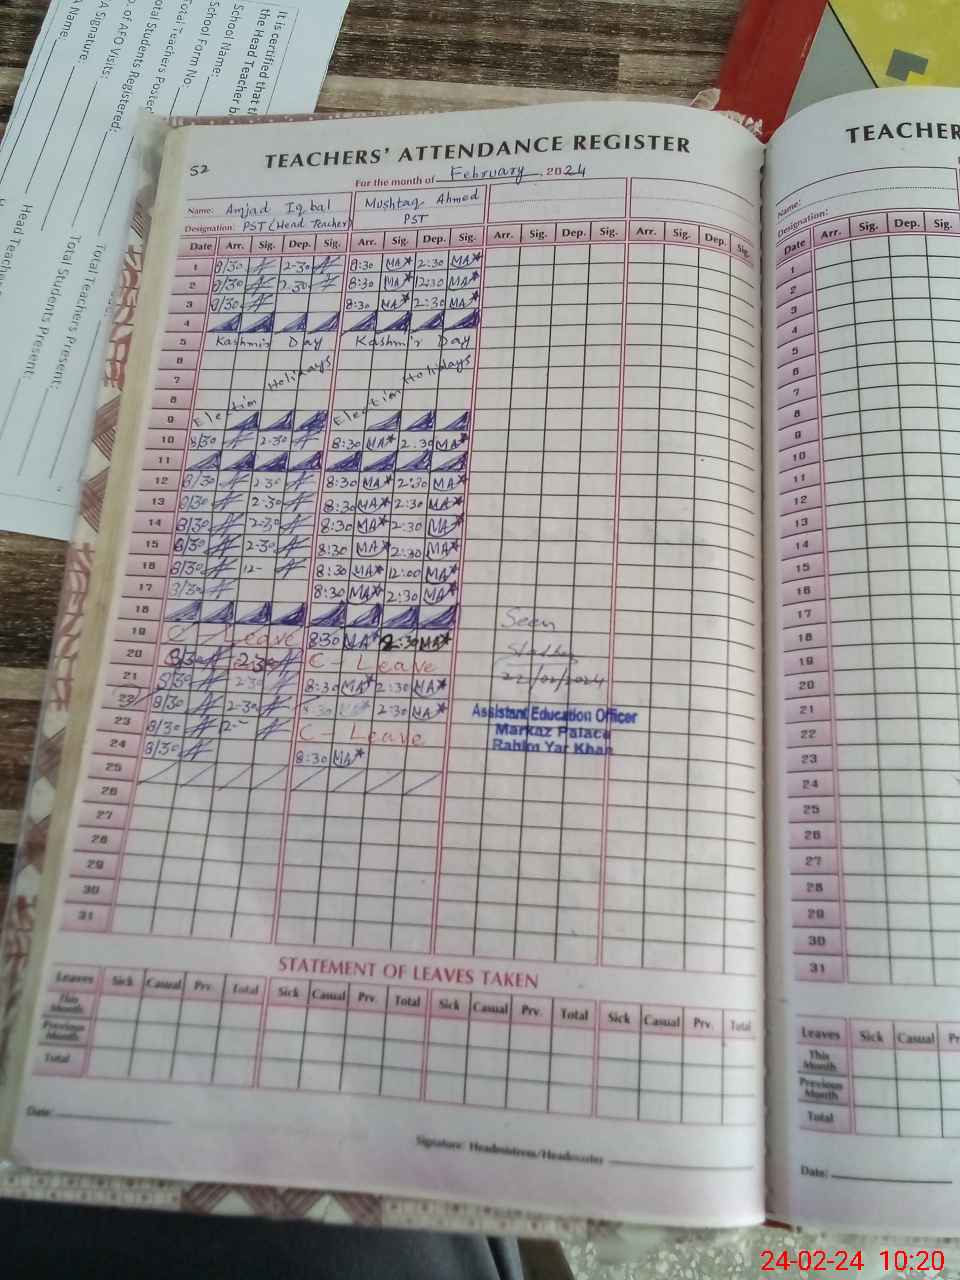 It is certified that th
the Head Teacher b
School Name:
School Form No:
Total Teachers Posted
Total Students Registered:
. of AFO Visits:
A Signature:
A Name:
Head Teacher
Total Teachers Present:
Total Students Present:
52
TEACHERS' ATTENDANCE REGISTER
For the month of February, 2024
Name: Amjad Iqbal Mushtaq Ahmed
Designation: PST (Head Teacher) PST
Date Arr. Sig. Dep. Sig. Arr. Sig. Dep. Sig. Arr. Sig. Dep. Sig. Arr. Sig. Dep. Sig.
1 8/30 2-30 8:30 MA 2:30 MA
2 8/30 2.30 8:30 MA 2:30 MA
3 8/30 8:30 MA 2:30 MA
4
5 Kashmir Day Kashmir Day
6
7
8 Election Holidays Election Holidays
9
10 8/30 2-30 8:30 MA 2:30 MA
11
12 8/30 2-30 8:30 MA 2:30 MA
13 8/30 2-30 8:30 MA 2:30 MA
14 8/30 2-30 8:30 MA 2:30 MA
15 8/30 2-30 8:30 MA 2:30 MA
16 8/30 12- 8:30 MA 12:00 MA
17 8/30 8:30 MA 2:30 MA
18
19 C - Leave 8:30 MA 2:30 MA
20 8/30 2-30 C - Leave
21 8/30 2-30 8:30 MA 2:30 MA
22 8/30 2-30 8:30 MA 2:30 MA
23 8/30 12- C - Leave
24 8/30 8:30 MA
25
26
27
28
29
30
31
Seen
22/02/2024
Assistant Education Officer
Markaz Palace
Rahim Yar Khan
STATEMENT OF LEAVES TAKEN
Leaves Sick Casual Prv. Total Sick Casual Prv. Total Sick Casual Prv. Total Sick Casual Prv. Total
This Month
Previous Month
Total
Date:
Signature: Headmistress/Headmaster
TEACHER
Name:
Designation:
Date Arr. Sig. Dep. Sig.
1
2
3
4
5
6
7
8
9
10
11
12
13
14
15
16
17
18
19
20
21
22
23
24
25
26
27
28
29
30
31
Leaves Sick Casual Pr
This Month
Previous Month
Total
Date:
24-02-24 10:20